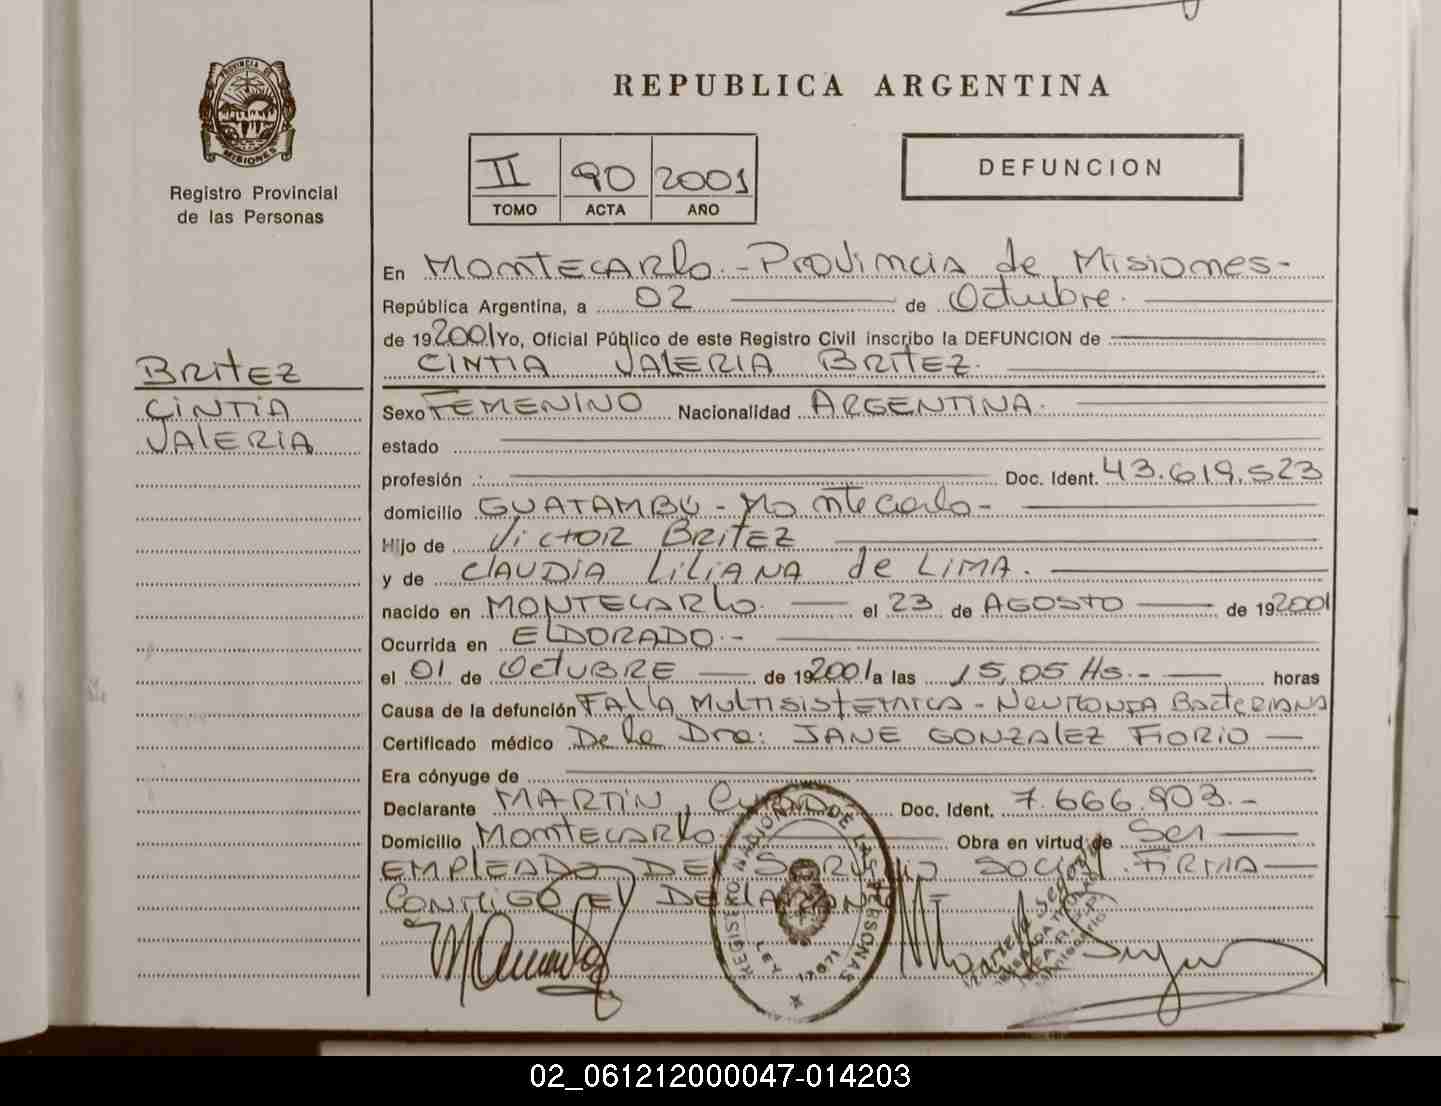 REPUBLICA ARGENTINA
PROVINCIA DE
MISIONES
Registro Provincial
de las Personas
II 90 2001
TOMO ACTA AÑO
DEFUNCION
En MONTECARLO.- PROVINCIA de MISIONES-
República Argentina, a 02 de Octubre.
de 192001 Yo, Oficial Público de este Registro Civil inscribo la DEFUNCION de
CINTIA VALERIA BRITEZ.
BRITEZ
CINTIA
VALERIA
Sexo FEMENINO Nacionalidad ARGENTINA.
estado
profesión Doc. Ident. 43.619.523
domicilio GUATAMBÚ - Montecarlo-
Hijo de VICTOR BRITEZ
y de CLAUDIA LILIANA de LIMA.
nacido en MONTECARLO. el 23 de AGOSTO de 192001
Ocurrida en ELDORADO.-
el 01 de OCTUBRE de 192001 a las 15,05 Hs.- horas
Causa de la defunción FALLA MULTISISTEMICA - NEUMONIA BACTERIANA
Certificado médico De la Dra: JANE GONZALEZ FIORIO
Era cónyuge de
Declarante MARTIN, Doc. Ident. 7.666.903.-
Domicilio MONTECARLO Obra en virtud de Ser
EMPLEADO DEL SERVICIO SOCIAL. FIRMA
CONMIGO EL DECLARANTE
REGISTRO NACIONAL DE LAS PERSONAS
LEY 17671
02_061212000047-014203